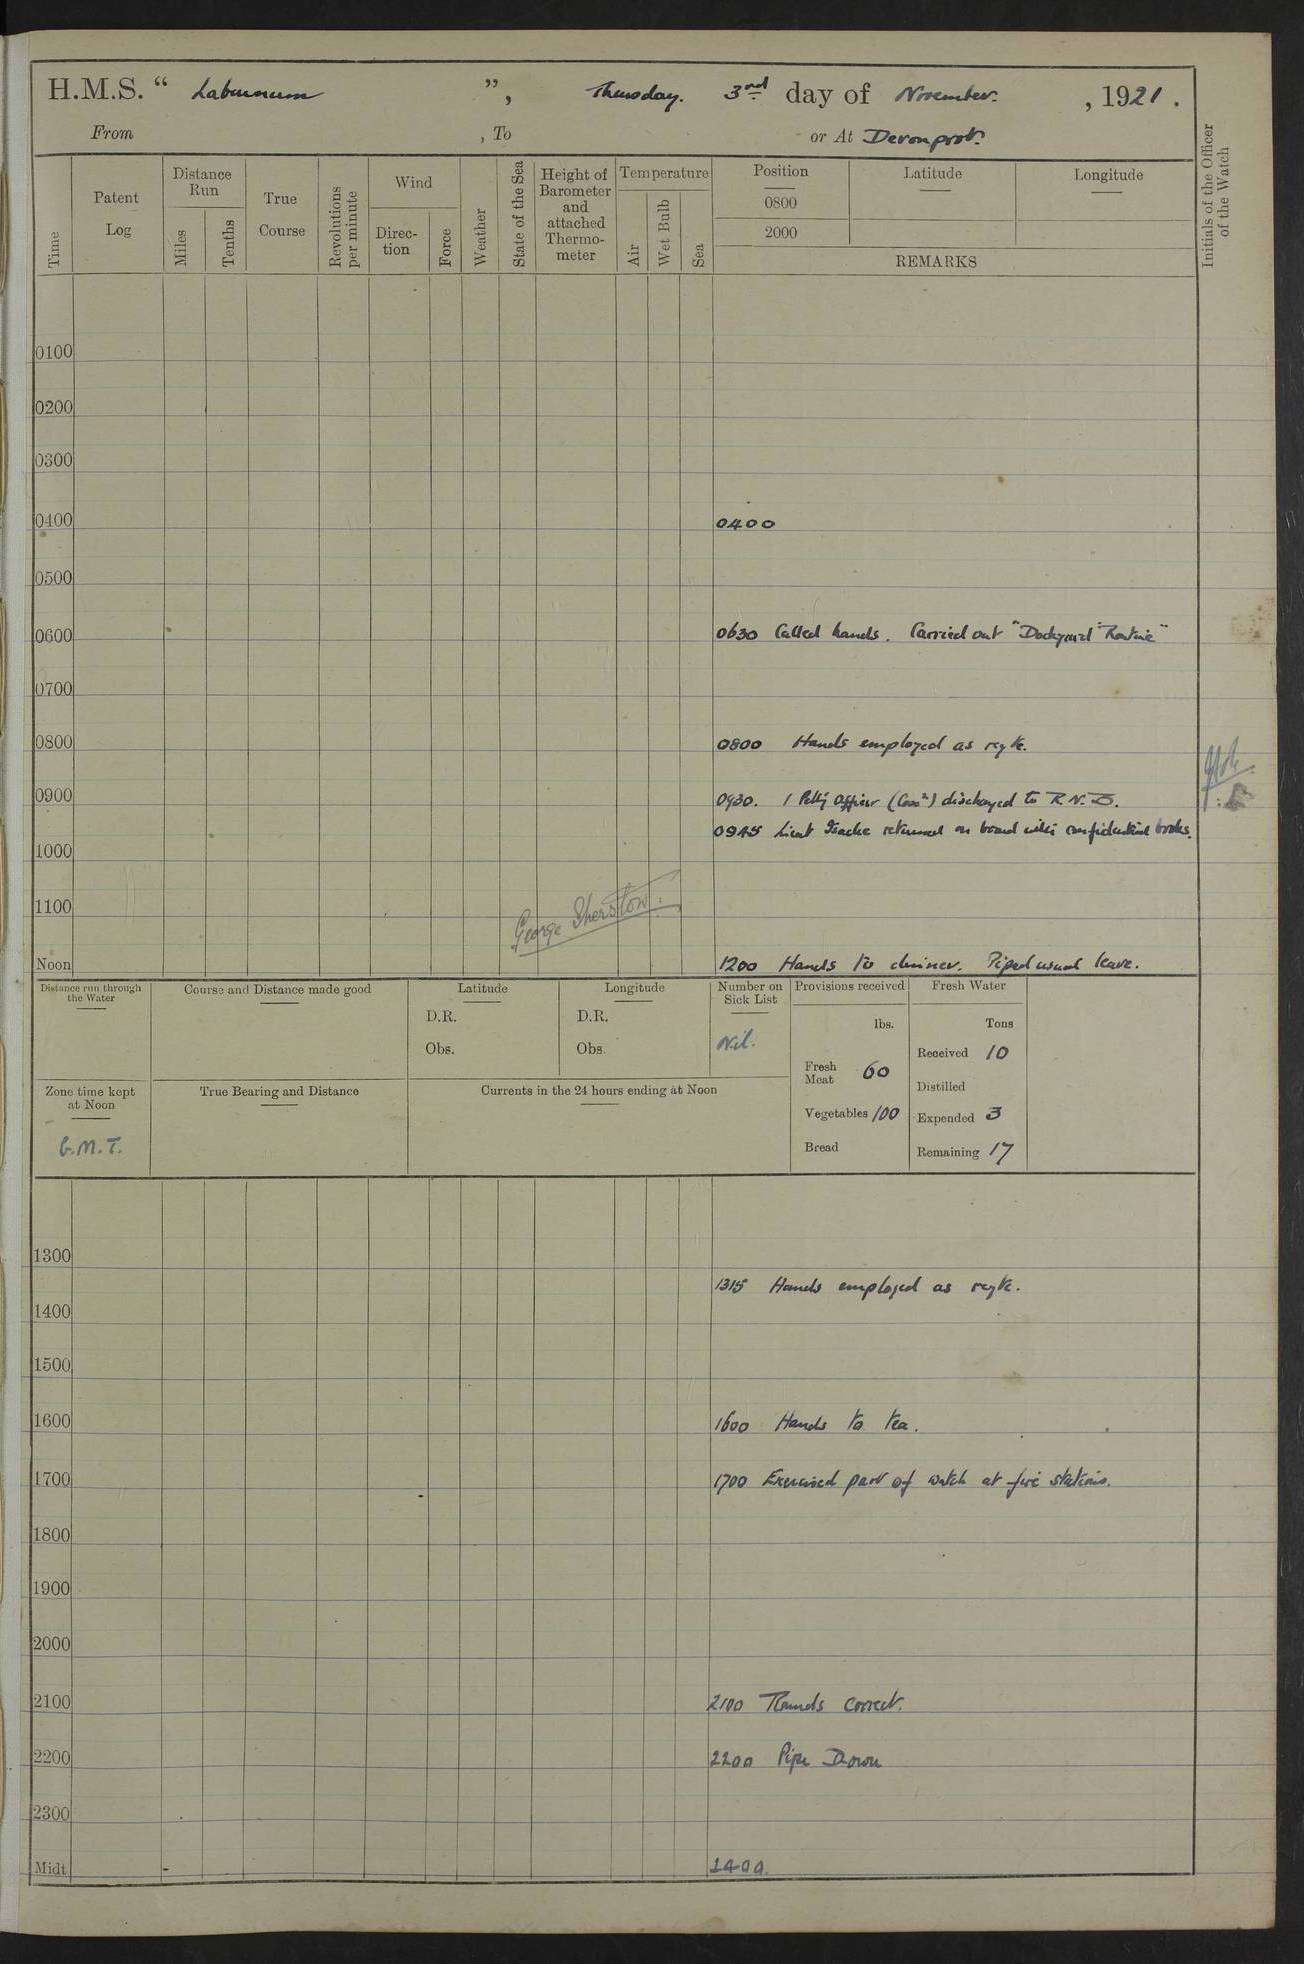 H.M.S. “ Laburnum ”, Thursday. 3rd day of November. , 1921 .
From , To or At Devonport.
Time
Patent Log
Distance Run
Miles
Tenths
True Course
Revolutions per minute
Wind
Direc-tion
Force
Weather
State of the Sea
Height of Barometer and attached Thermo-meter
Temperature
Air
Wet Bulb
Sea
Position
0800
2000
Latitude
Longitude
REMARKS
Initials of the Officer of the Watch
0100
0200
0300
0400 0400
0500
0600 0630 Called hands. Carried out "Dockyard Routine"
0700
0800 0800 Hands employed as reqte.
0900 0930. 1 Petty Officer (Coxn) discharged to R.N.B.
0945 Lieut returned on board with confidential books.
1000
1100
George Sherston.
Noon 1200 Hands to dinner. Piped usual leave.
Distance run through the Water
Course and Distance made good
Latitude
D.R.
Obs.
Longitude
D.R.
Obs.
Number on Sick List
Nil.
Provisions received
lbs.
Fresh Meat 60
Vegetables 100
Bread
Fresh Water
Tons
Received 10
Distilled
Expended 3
Remaining 17
Zone time kept at Noon
G.M.T.
True Bearing and Distance
Currents in the 24 hours ending at Noon
1300
1315 Hands employed as reqte.
1400
1500
1600 1600 Hands to tea.
1700 1700 Exercised part of watch at fire stations.
1800
1900
2000
2100 2100 Rounds correct.
2200 2200 Pipe Down
2300
Midt 2400.